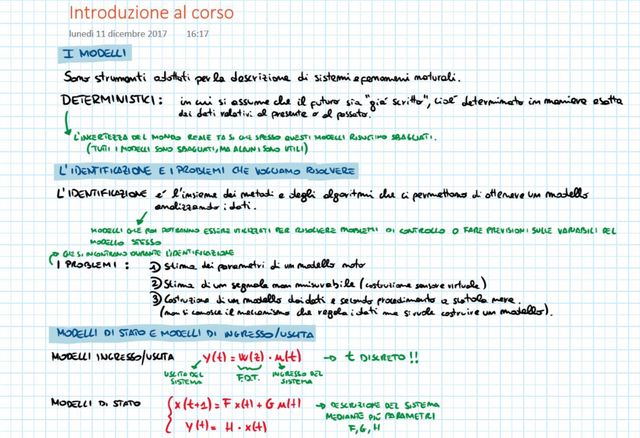 Introduzione al corso
lunedì 11 dicembre 2017 16:17
I MODELLI
Sono strumenti adottati per la descrizione di sistemi e fenomeni naturali.
DETERMINISTICI: in cui si assume che il futuro sia "già scritto", cioè determinato in maniera esatta
dai dati relativi al presente o al passato.
L'INCERTEZZA DEL MONDO REALE FA SI CHE SPESSO QUESTI MODELLI RISULTINO SBAGLIATI.
(TUTTI I MODELLI SONO SBAGLIATI, MA ALCUNI SONO UTILI)
L'IDENTIFICAZIONE E I PROBLEMI CHE VOGLIAMO RISOLVERE
L'IDENTIFICAZIONE è l'insieme dei metodi e degli algoritmi che ci permettono di ottenere un modello
analizzando i dati.
MODELLI CHE POI POTRANNO ESSERE UTILIZZATI PER RISOLVERE PROBLEMI DI CONTROLLO O FARE PREVISIONI SULLE VARIABILI DEL
MODELLO STESSO
CHE SI INCONTRANO DURANTE L'IDENTIFICAZIONE
I PROBLEMI: 1) Stima dei parametri di un modello noto
2) Stima di un segnale non misurabile (costruzione sensore virtuale)
3) Costruzione di un modello dai dati e secondo procedimento a scatola nera.
(non si conosce il meccanismo che regola i dati ma si vuole costruire un modello).
MODELLI DI STATO E MODELLI DI INGRESSO/USCITA
MODELLI INGRESSO/USCITA y(t) = W(z) · u(t) → t DISCRETO !!
USCITA DEL F.D.T. INGRESSO DEL
SISTEMA SISTEMA
MODELLI DI STATO { x(t+1) = F x(t) + G u(t) → DESCRIZIONE DEL SISTEMA
MEDIANTE PIÙ PARAMETRI
y(t) = H · x(t) F, G, H